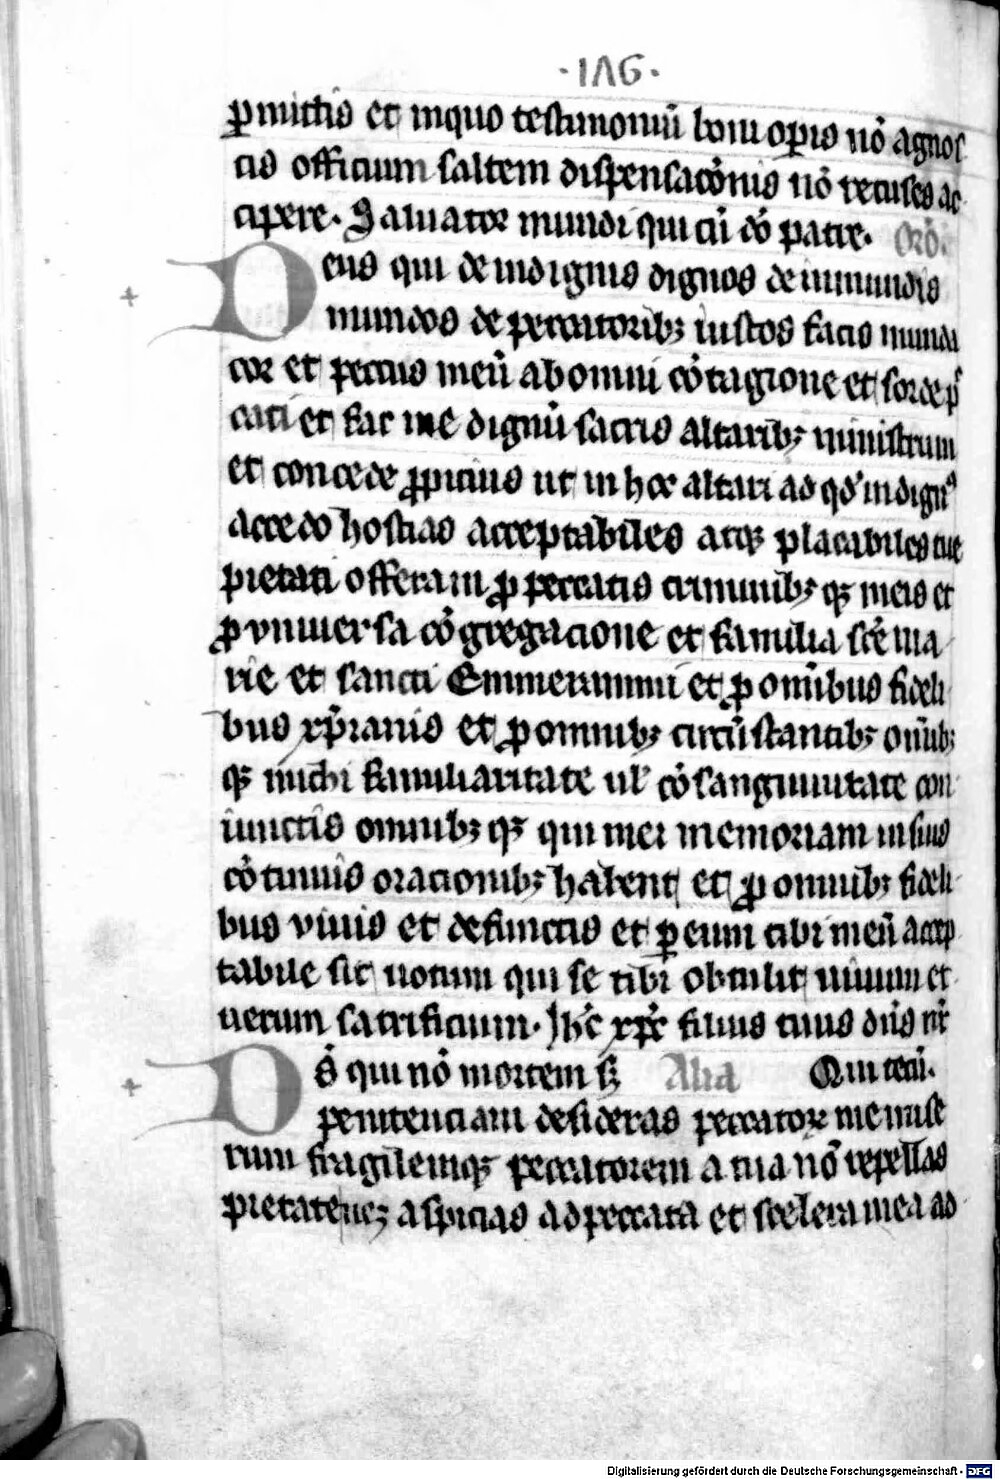 ·1Λ6·
ꝑmittis et inquo testimoniū boni oꝑis nō agnos
cis officium saltem dispensacōnis nō recuses ac
cipere. Saluator mundi qui cū dō patre. Orō.
Deus qui de indignis dignos de inmundis
mundos de peccatoribꝫ iustos facis munda
cor et pectus meū ab omni cōtagione et sorde pc̄
cati et fac me dignū sacris altaribꝫ ministrum
et concede ꝓpicius ut in hoc altari ad qd' indignꝰ
accedo hostias acceptabiles atqꝫ placabiles tue
pietati offeram ꝓ peccatis criminibꝫ qꝫ meis et
ꝓ vniuersa cōgregacione et familia scē ma
rie et sancti Emmerammi et ꝓ omībus fideli
bus xp̄ianis et ꝓ omnibꝫ circūstantibꝫ omībꝫ
qꝫ michi familiaritate ul' cōsanguinitate con
iunctis omnibꝫ qꝫ qui mei memoriam in suis
cōtinuis oracionibꝫ habent et ꝓ omnibꝫ fideli
bus viuis et defunctis et ꝑ eum tibi meū accep
tabile sit uotum qui se tibi obtulit uiuum et
uerum sacrificium. Ihc̄ xpc̄ filius tuus dn̄s nr̄
Ds̄ qui nō mortem sꝫ Alia Qui tecū.
penitenciam desideras peccatorꝝ me mise
rum fragilemqꝫ peccatorem a tua nō repellas
pietate neqꝫ aspicias ad peccata et scelera mea ad
Digitalisierung gefördert durch die Deutsche Forschungsgemeinschaft - DFG